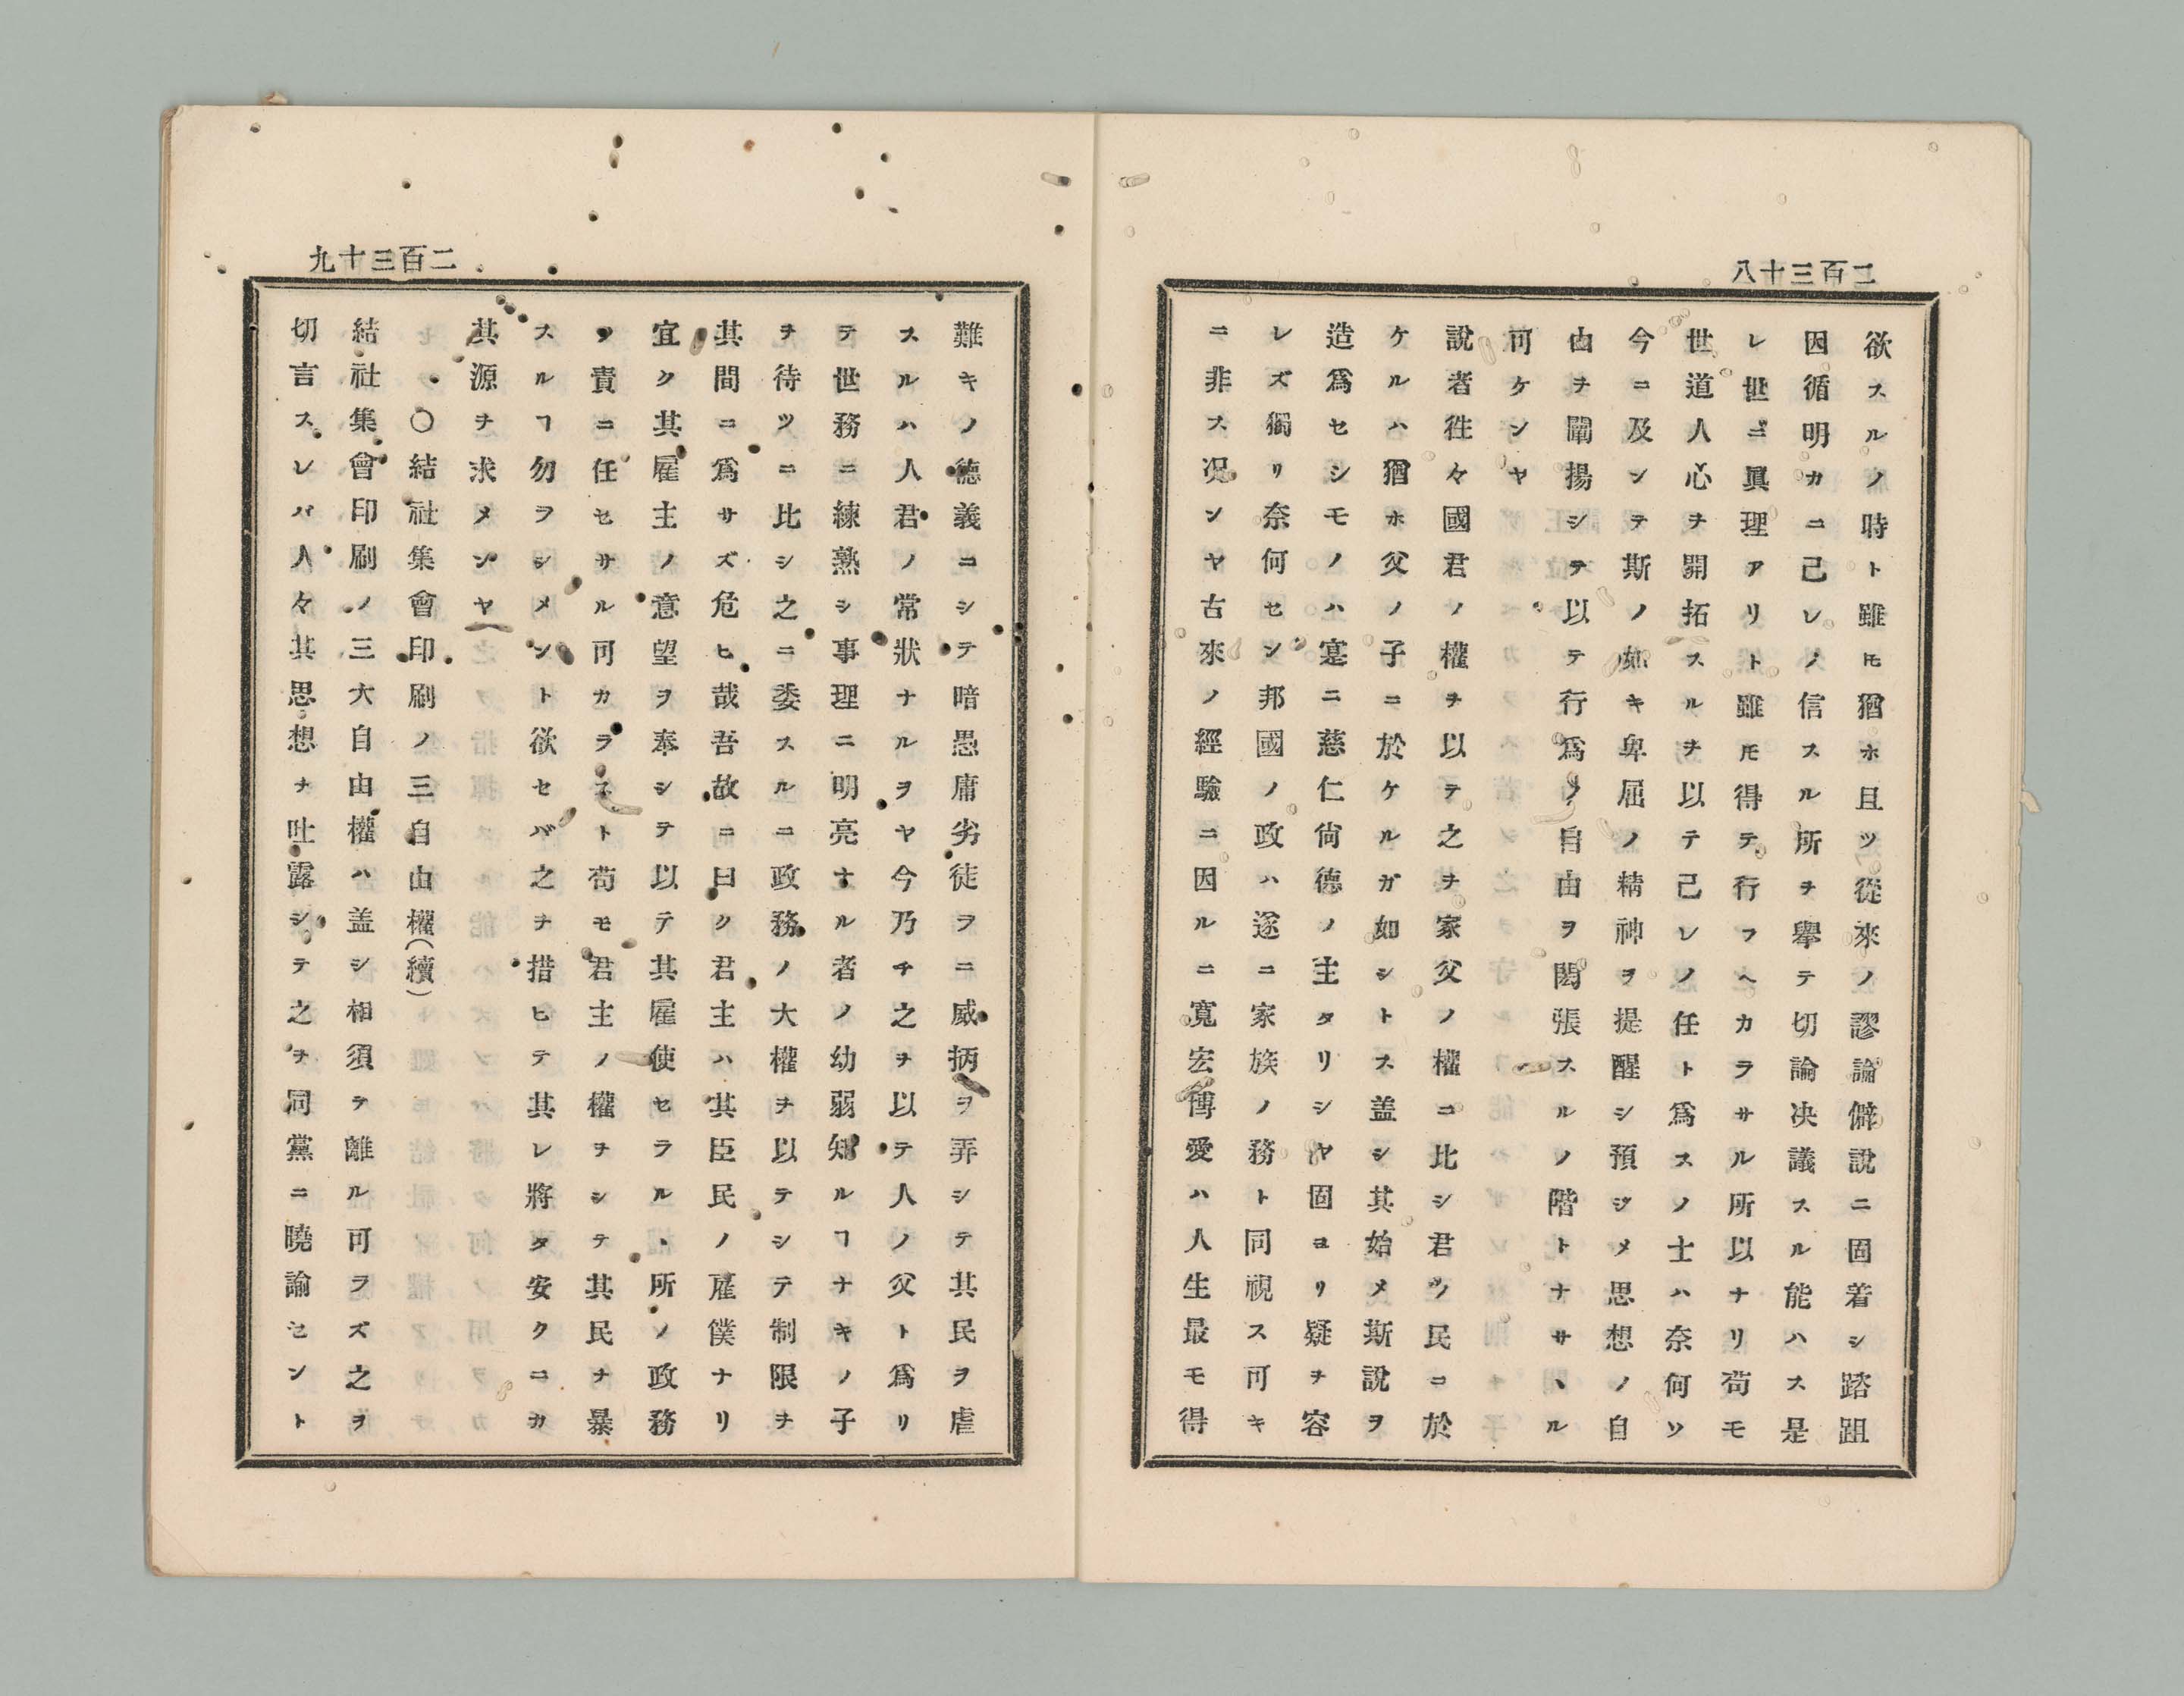 二百三十八
欲スルノ時ト雖𪜈猶ホ且ツ從來ノ謬論僻說ニ固着シ踏跙
因循明カニ己レノ信スル所ヲ擧テ切論決議スル能ハス是
レ世ニ眞理アリト雖𪜈得テ行フヘカラサル所以ナリ苟モ
世道人心ヲ開拓スルヲ以テ己レノ任ト爲スノ士ハ奈何ソ
今ニ及ンテ斯ノ如キ卑屈ノ精神ヲ提醒シ預ジメ思想ノ自
由ヲ闡揚シテ以テ行爲ノ自由ヲ閎張スルノ階トナサヽル
可ケンヤ
說者徃々國君ノ權ヲ以テ之ヲ家父ノ權ニ比シ君ツ民ニ於
ケルハ猶ホ父ノ子ニ於ケルガ如シトス盖シ其始メ斯說ヲ
造爲セシモノハ寔ニ慈仁尙德ノ主タリシヤ固ヨリ疑ヲ容
レズ獨リ奈何セン邦國ノ政ハ遂ニ家族ノ務ト同視ス可キ
ニ非ス况ンヤ古來ノ經驗ニ因ルニ寬宏博愛ハ人生最モ得
二百三十九
難キノ德義ニシテ暗愚庸劣徒ラニ威抦ヲ弄シテ其民ヲ虐
スルハ人君ノ常狀ナルヲヤ今乃チ之ヲ以テ人ノ父ト爲リ
テ世務ニ練熟シ事理ニ明亮ナル者ノ幼弱知ルヿナキノ子
ヲ待ツニ比シ之ニ委スルニ政務ノ大權ヲ以テシテ制限ヲ
其間ニ爲サズ危ヒ哉吾故ニ曰ク君主ハ其臣民ノ雇僕ナリ
宜ク其雇主ノ意望ヲ奉シテ以テ其雇使セラルヽ所ノ政務
ツ責ニ任セサル可カラスト苟モ君主ノ權ヲシテ其民ヲ暴
スルヿ勿ラシメント欲セバ之ヲ措ヒテ其レ將タ安クニカ
其源ヲ求メンヤ
〇結社集會印刷ノ三自由權(續)
結社集會印刷ノ三大自由權ハ盖シ相須テ離ル可ラズ之ヲ
切言スレバ人々其思想ヲ吐露シテ之ヲ同黨ニ曉諭セント